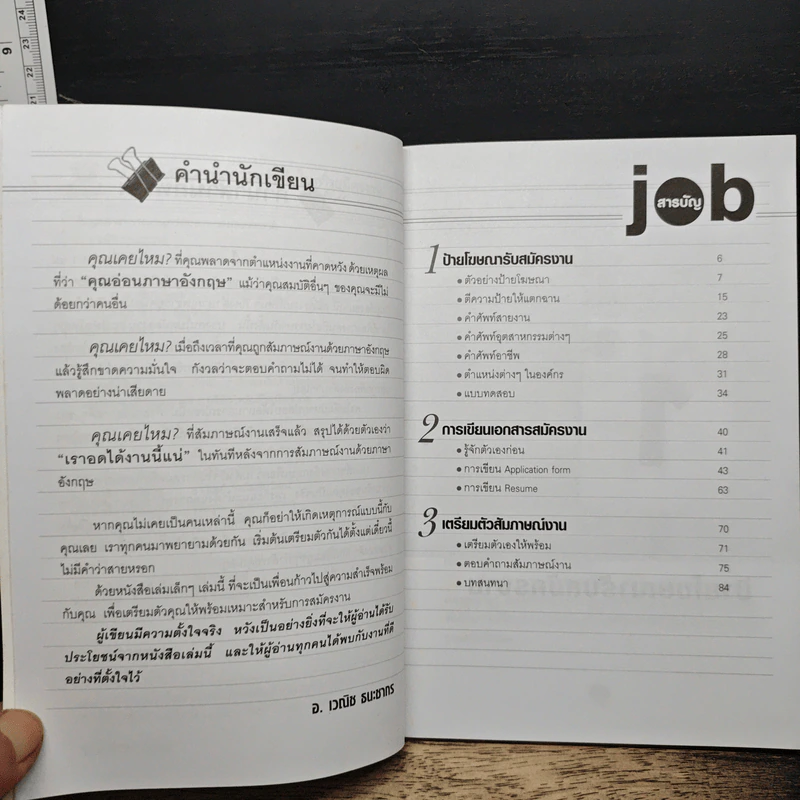 คำนำนักเขียน
คุณเคยไหม? ที่คุณพลาดจากตำแหน่งงานที่คาดหวัง ด้วยเหตุผล
ที่ว่า "คุณอ่อนภาษาอังกฤษ" แม้ว่าคุณสมบัติอื่นๆ ของคุณจะมีไม่
ด้อยกว่าคนอื่น
คุณเคยไหม? เมื่อถึงเวลาที่คุณถูกสัมภาษณ์งานด้วยภาษาอังกฤษ
แล้วรู้สึกขาดความมั่นใจ กังวลว่าจะตอบคำถามไม่ได้ จนทำให้ตอบผิด
พลาดอย่างน่าเสียดาย
คุณเคยไหม? ที่สัมภาษณ์งานเสร็จแล้ว สรุปได้ด้วยตัวเองว่า
"เราอดได้งานนี้แน่" ในทันทีหลังจากการสัมภาษณ์งานด้วยภาษา
อังกฤษ
หากคุณไม่เคยเป็นคนเหล่านี้ คุณก็อย่าให้เกิดเหตุการณ์แบบนี้กับ
คุณเลย เราทุกคนมาพยายามด้วยกัน เริ่มต้นเตรียมตัวกันได้ตั้งแต่เดี๋ยวนี้
ไม่มีคำว่าสายหรอก
ด้วยหนังสือเล่มเล็กๆ เล่มนี้ ที่จะเป็นเพื่อนก้าวไปสู่ความสำเร็จพร้อม
กับคุณ เพื่อเตรียมตัวคุณให้พร้อมเหมาะสำหรับการสมัครงาน
ผู้เขียนมีความตั้งใจจริง หวังเป็นอย่างยิ่งที่จะให้ผู้อ่านได้รับ
ประโยชน์จากหนังสือเล่มนี้ และให้ผู้อ่านทุกคนได้พบกับงานที่ดี
อย่างที่ตั้งใจไว้
อ. เวณิช ธนะชากร
job
สารบัญ
1 ป้ายโฆษณารับสมัครงาน 6
• ตัวอย่างป้ายโฆษณา 7
• ตีความป้ายให้แตกฉาน 15
• คำศัพท์สายงาน 23
• คำศัพท์อุตสาหกรรมต่างๆ 25
• คำศัพท์อาชีพ 28
• ตำแหน่งต่างๆ ในองค์กร 31
• แบบทดสอบ 34
2 การเขียนเอกสารสมัครงาน 40
• รู้จักตัวเองก่อน 41
• การเขียน Application form 43
• การเขียน Resume 63
3 เตรียมตัวสัมภาษณ์งาน 70
• เตรียมตัวเองให้พร้อม 71
• ตอบคำถามสัมภาษณ์งาน 75
• บทสนทนา 84
9
24
23
22
21